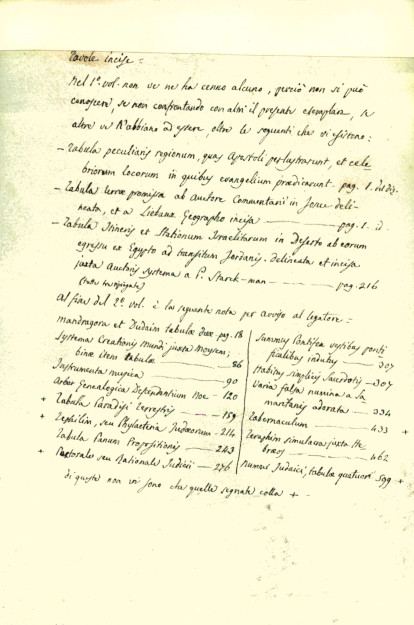 Tavole incise =
Nel 1.º vol. non ve ne ha cenno alcuno, perciò non si può
conoscere, se non confrontando con altri il presente esemplare, se
altre ve n'abbiano ad essere, oltre le seguenti che vi esistono:
— Tabula peculiaris regionum, quas Apostoli perlustrarunt, et cele
briorum locorum in quibus evangelium prædicarunt pag. 1.
— Tabula terræ promissæ ab Auctore Commentarii in Josue deli-
neata, et a Liebaux Geographo incisa — pag. 1. id.
— Tabula Itineris et Stationum Israelitarum in Deserto ab eorum
egressu ex Egypto ad transitum Jordanis, delineata et incisa
juxta Auctoris systema a P. Starck-man — pag. 216
(tutte tre ripiegate)
Al fine del 2.º vol. è la seguente nota per avviso al legatore =
mandragora et Dudaim tabulæ duæ pag. 18
Systema Creationis mundi juxta Moysem;
binæ item tabulæ — 86
Instrumenta musica — 90
Arbor Genealogica Descendentium Noe — 120
+ Tabula Paradisi Terrestris — 159
+ Tephilim, seu Phylacteria Judæorum — 214
Tabula Panum Propositionis — 243
+ Pectorale seu Rationale Judicii — 276
Summus Pontifex vestibus ponti
ficalibus indutus — 307
Habitus simplicis Sacerdotis — 307
Varia falsa numina a Sa
maritanis adorata — 334
Tabernaculum — 433 +
Teraphim simulacra juxta He
bræos — 462
Numus Judaici, tabulæ quatuor 599 +
di queste non vi sono che quelle segnate colla + —